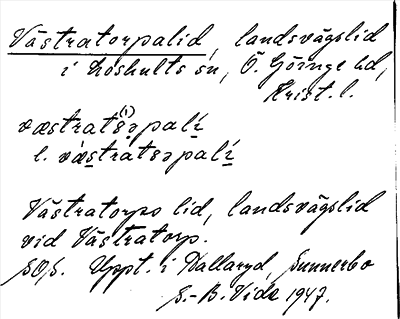 Västratorpalid, landsvägslid
i Loshults sn, Ö. Göinge hd,
Krist. l.
væstratsə(1)palí
l. væ̀stratsəpalí
Västratorps lid, landsvägslid
vid Västratorp.
SOS. Uppt. i Hallaryd, Sunnerbo
S.-B. Vide 1947.